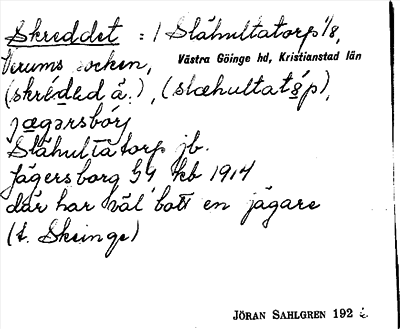 Skreddet : / Slähultatorp 1/8,
Verums socken, Västra Göinge hd, Kristianstad län
(skrédedä.), (slæhultatǫ́p),
jægərsbórj
Slähultatorp jb.
Jägersborg GS kb 1914
där har väl bott en jägare
(t. Skeinge)
JÖRAN SAHLGREN 192